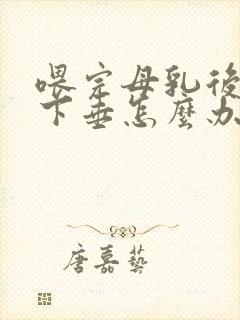 喂完母乳後
下垂怎麼办
唐嘉藝